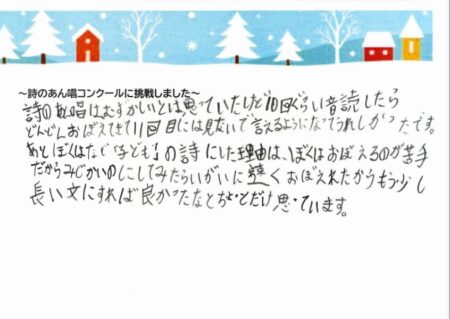 ～詩のあん唱コンクールに挑戦しました～
詩のあん唱はむずかしいとは思っていたけど10回ぐらい音読したら
どんどんおぼえてきて11回目には見ないで言えるようになってうれしかったです。
あとぼくはなぜ「子ども」の詩にした理由は、ぼくはおぼえるのが苦手
だからみじかいのにしてみたらいがいに速くおぼえれたからもう少し
長い文にすれば良かったなとちょとだけ思っています。